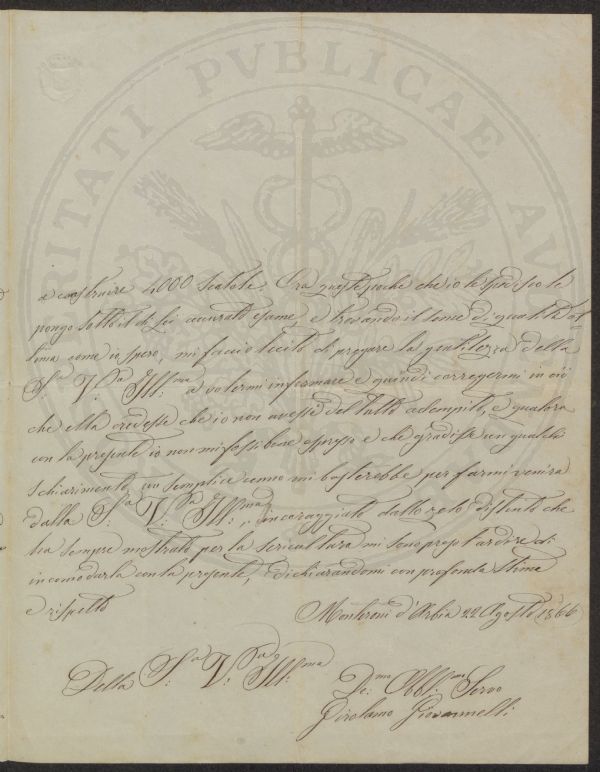 a costruire 4000 scatole. Ora queste poche che io le spedisco le
pongo sotto il di Lei accurato esame, e trovando il seme di qualità ot-
tima come io spero, mi faccio lecito di pregare la gentilezza della
S.a V.a Ill.ma a volermi informare e quindi correggermi in ciò
che ella credesse che io non avessi del tutto adempito, e qualora
con la presente io non mi fossi bene espresso e che gradisse un qualche
schiarimento, un semplice cenno mi basterebbe per farmi venire
dalla S.a V.a Ill.ma, incoraggiato dallo zelo distinto che
ha sempre mostrato per la sericultura mi sono preso l'ardire di
incomodarla con la presente, dichiarandomi con profonda stima
e rispetto
Monteroni d'Arbia 22 Agosto 1866
Della S.a V.a Ill.ma
De:mo Obbl:mo Servo
Girolamo Giovannelli
PVBLICAE